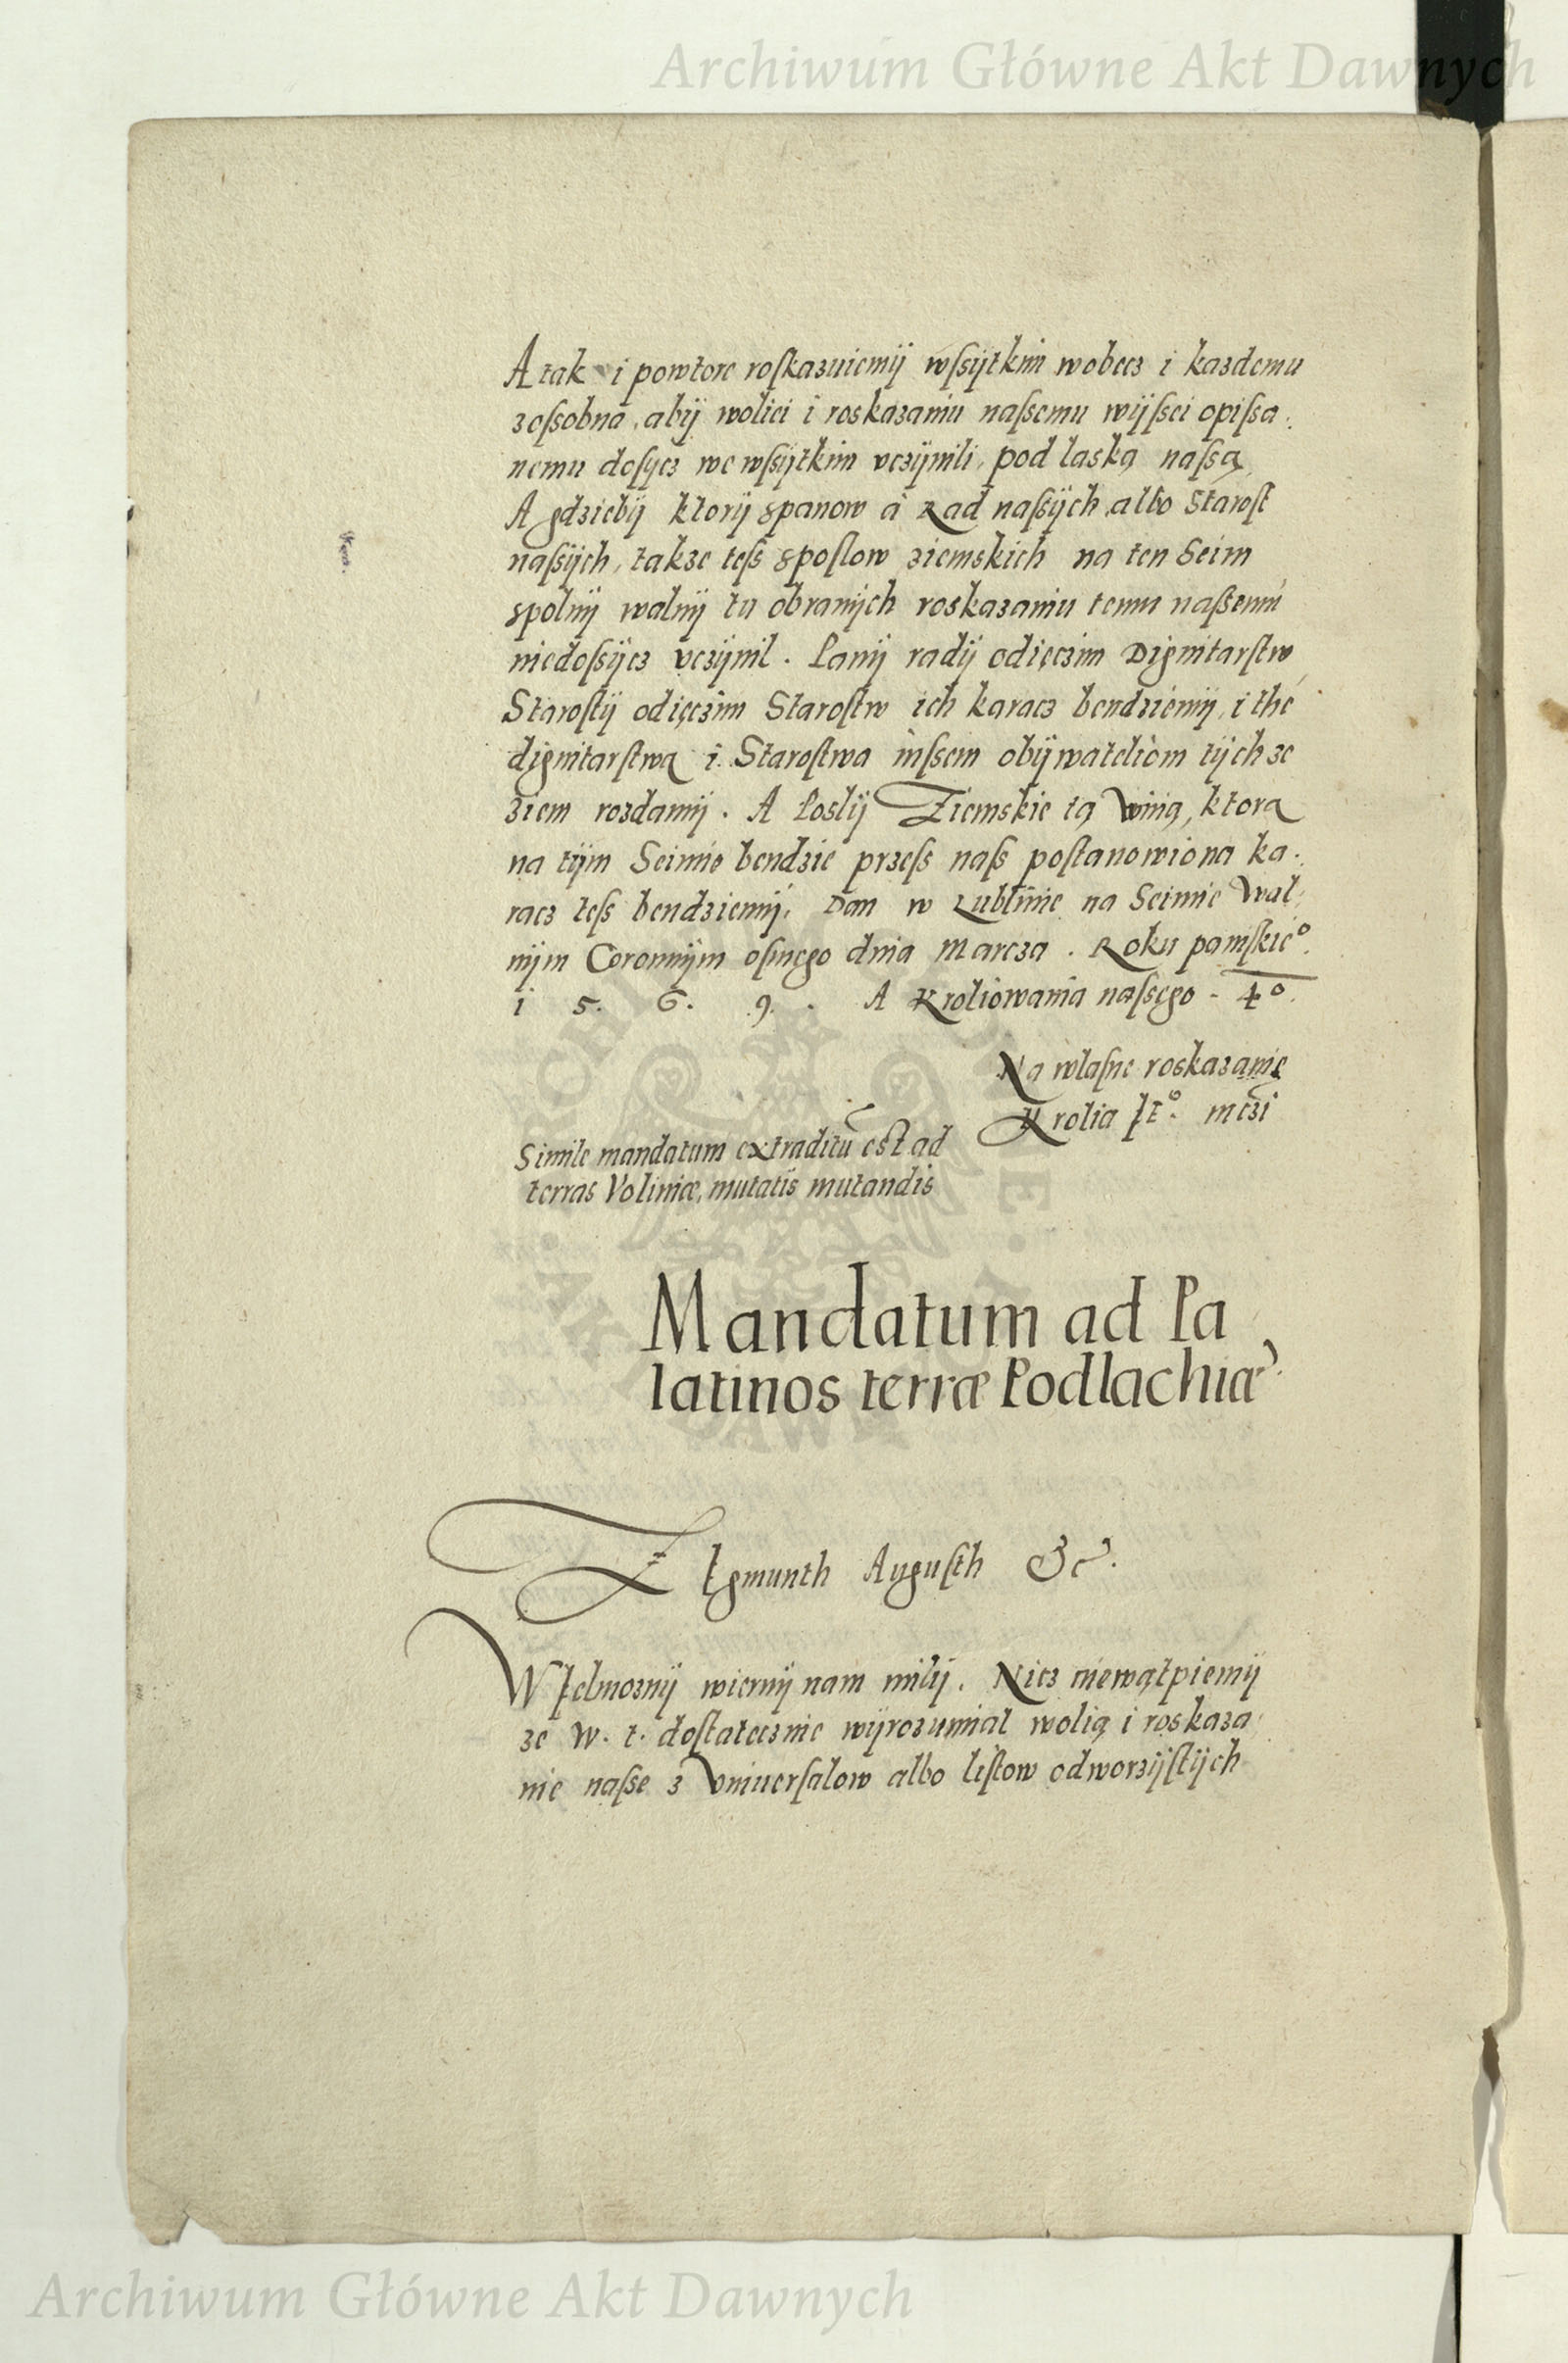 Archiwum Główne Akt Dawnych
A tak i powtore roſkazuiemÿ wſsÿtkim wobecz i kazdemu
zoſsobna, abÿ woliei i roskazaniu naſsemu wÿſsei opiſsa
nemu doſycz we wſsÿtkim vczÿnili, pod laską naſsą
A gdziebÿ ktorÿ zpanow a Rad naſsÿch albo Staroſt
naſsÿch, takze teſs zpoſlow ziemskich na ten Seim
spolnÿ walnÿ tu obranÿch roskazaniu temu naſsemu
niedoſsÿcz vczÿnil. Panÿ radÿ odięczim Dignitarſtw
Staroſtÿ odięczim Staroſtw ich karacz bendziemÿ, i the
dignitarſtwa i Staroſtwa inſsem obÿwateliom tÿchze
ziem rozdamÿ. A Poslÿ Ziemskie tą winą, ktora
na tÿm Seimie bendzie przeſs naſs poſtanowiona ka
racz teſs bendziemÿ. Dan w Lublinie na Seimie Wal
nÿm Coronnÿm oſmego dnia Marcza. Roku panſkieº
i 5. 6. 9. A Kroliowania naſsego - 4º.
Na wlaſne roskazanie
Krolia Jeº. mczi
Simile mandatum extraditū est ad
terras Voliniæ, mutatis mutandis
Mandatum ad Pa
latinos terræ Podlachiæ
Zÿgmunth Auguſth &c.
Wielmoznÿ wiernÿ nam milÿ. Nicz niewątpiemÿ
ze W. t. doſtatecznie wÿrozumial wolią i roskaza
nie naſse z Vniuerſalow albo liſtow odworzÿſtÿch
Archiwum Główne Akt Dawnych